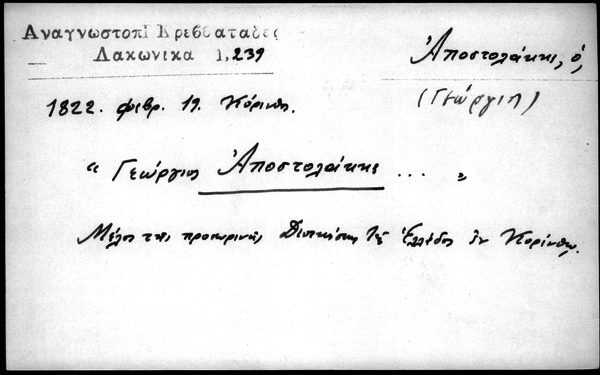 Αναγνωστοπ Κρεββαταδες
Λακωνικα 1,239
Ἀποστολάκης, ὁ,
(Γεώργιος)
1822. φεβρ. 19. Κόρινθ.
“ Γεώργιος Ἀποστολάκης ... „
Μέλος της προσωρινῆς Διοικήσεως τῆς Ἑλλάδος ἐν Κορίνθῳ.